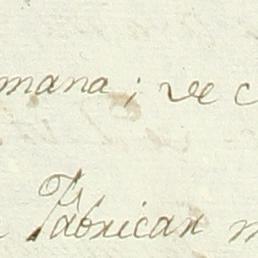 mana; ve c
Fabricar m